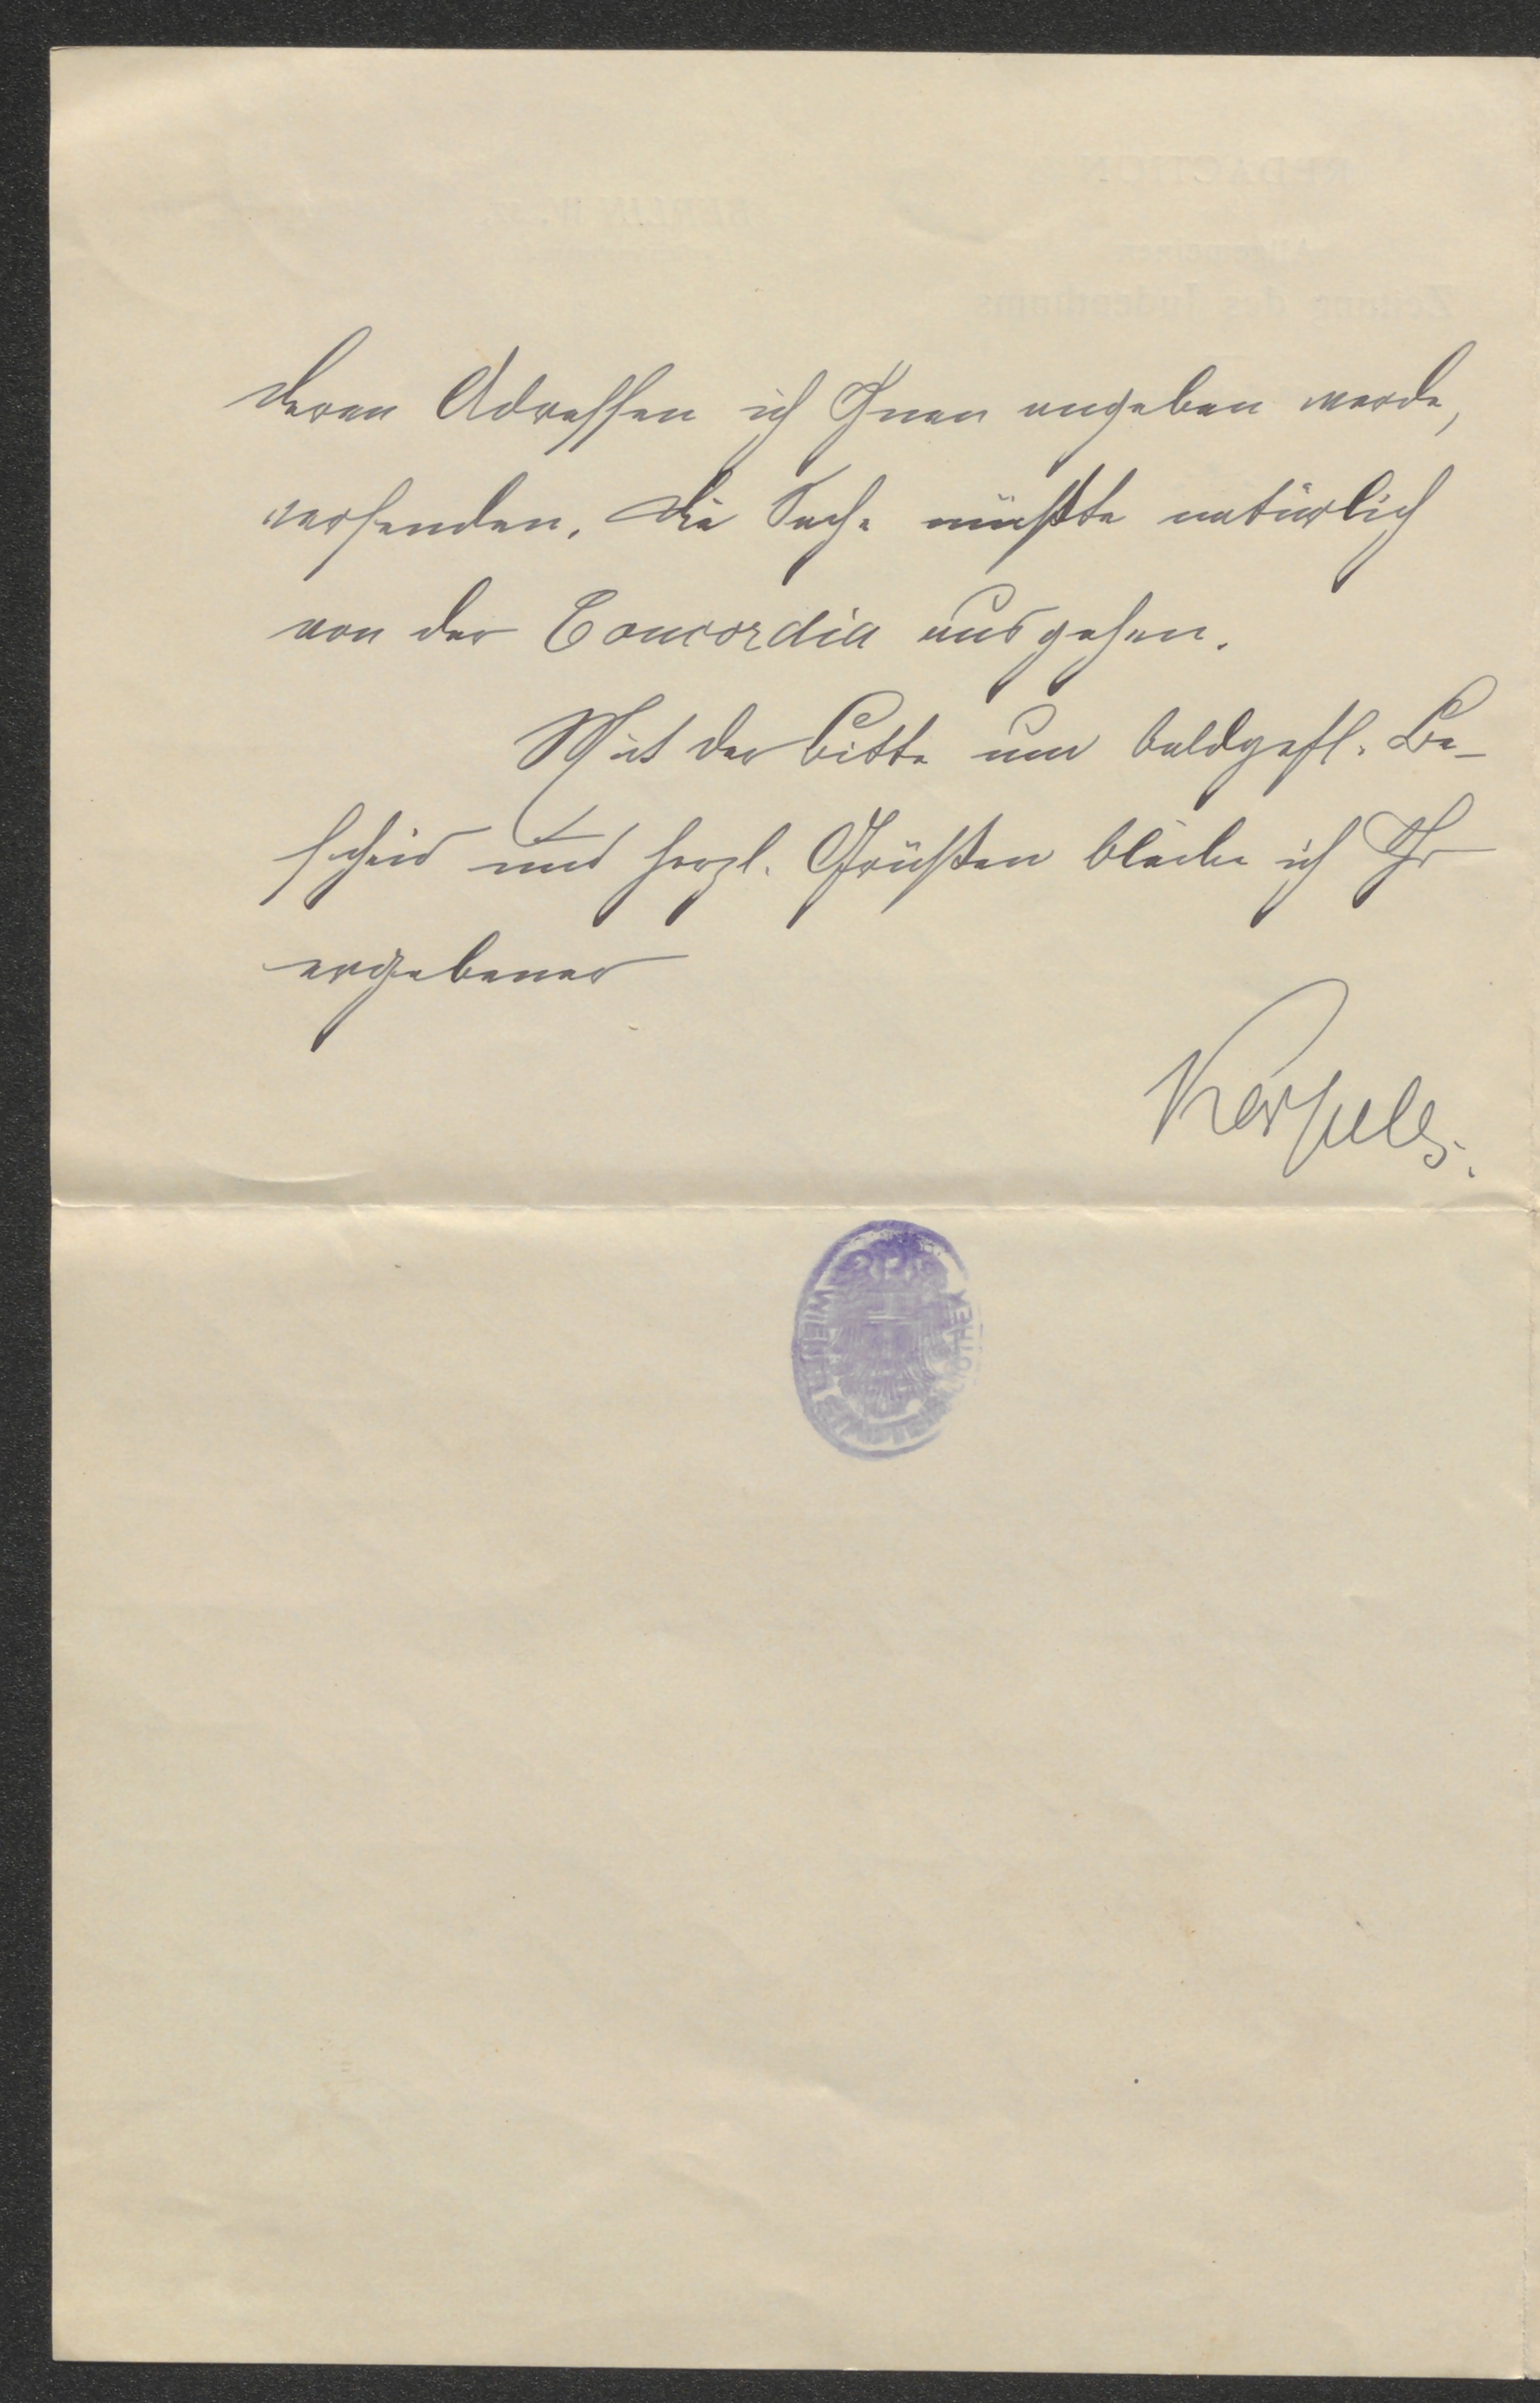 deren Adressen ich Ihnen angeben werde,
versenden. Die Sache müßte natürlich
von der Concordia ausgehen.
Mit der Bitte um baldgefl. Be-
scheid und herzl. Grüßen bleibe ich Ihr
ergebener
Karpeles.